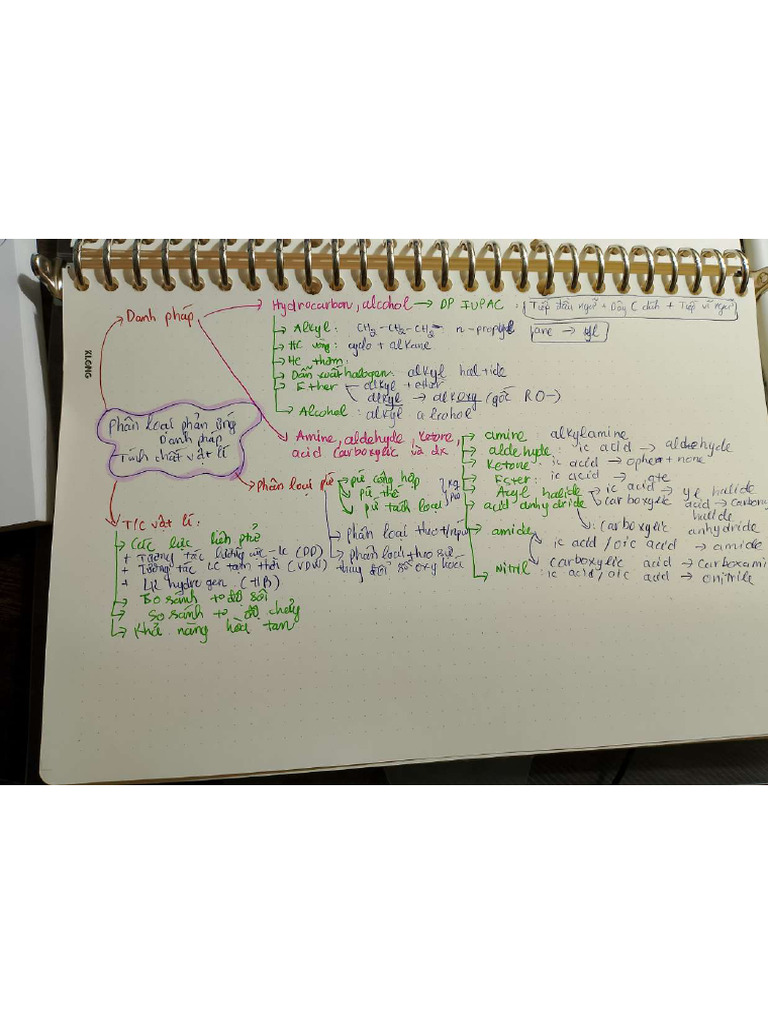 KLONG
Danh pháp
Hydrocarbon, alcohol → DP IUPAC : Tiếp đầu ngữ + Dãy C chính + Tiếp vĩ ngữ
Alkyl : CH2-CH2-CH2- n-propyl
ane → yl
HC vòng : cyclo + alkane
HC thơm :
Dẫn xuất halogen: alkyl halide
Ether alkyl + ether
alkyl → alkoxy (gốc RO-)
Alcohol : alkyl alcohol
Phân loại phản ứng
Danh pháp
Tính chất vật lí
Amine, aldehyde, ketone,
acid carboxylic và dx
amine alkylamine
aldehyde : ic acid → aldehyde
Ketone : ic acid → ophen + none
Ester : ic acid → ate
Acyl halide → ic acid → yl halide
carboxylic acid → carbony
halide
acid anhydride
: carboxylic anhydride
amide
ic acid / oic acid → amide
carboxylic acid → carboxami
Nitril : ic acid / oic acid → onitrile
Phân loại pứ
pứ cộng hợp
pứ thế
pứ tách loại
Phân loại theo t/nhân
phân loại theo sự
thay đổi số oxy hóa
T/C vật lí :
Các lực liên phử
+ Tương tác lưỡng cực - lc (DD)
+ Tương tác LC tạm thời (VDW)
+ LK hydrogen (HB)
So sánh to độ sôi
So sánh to độ chảy
Khả năng hòa tan